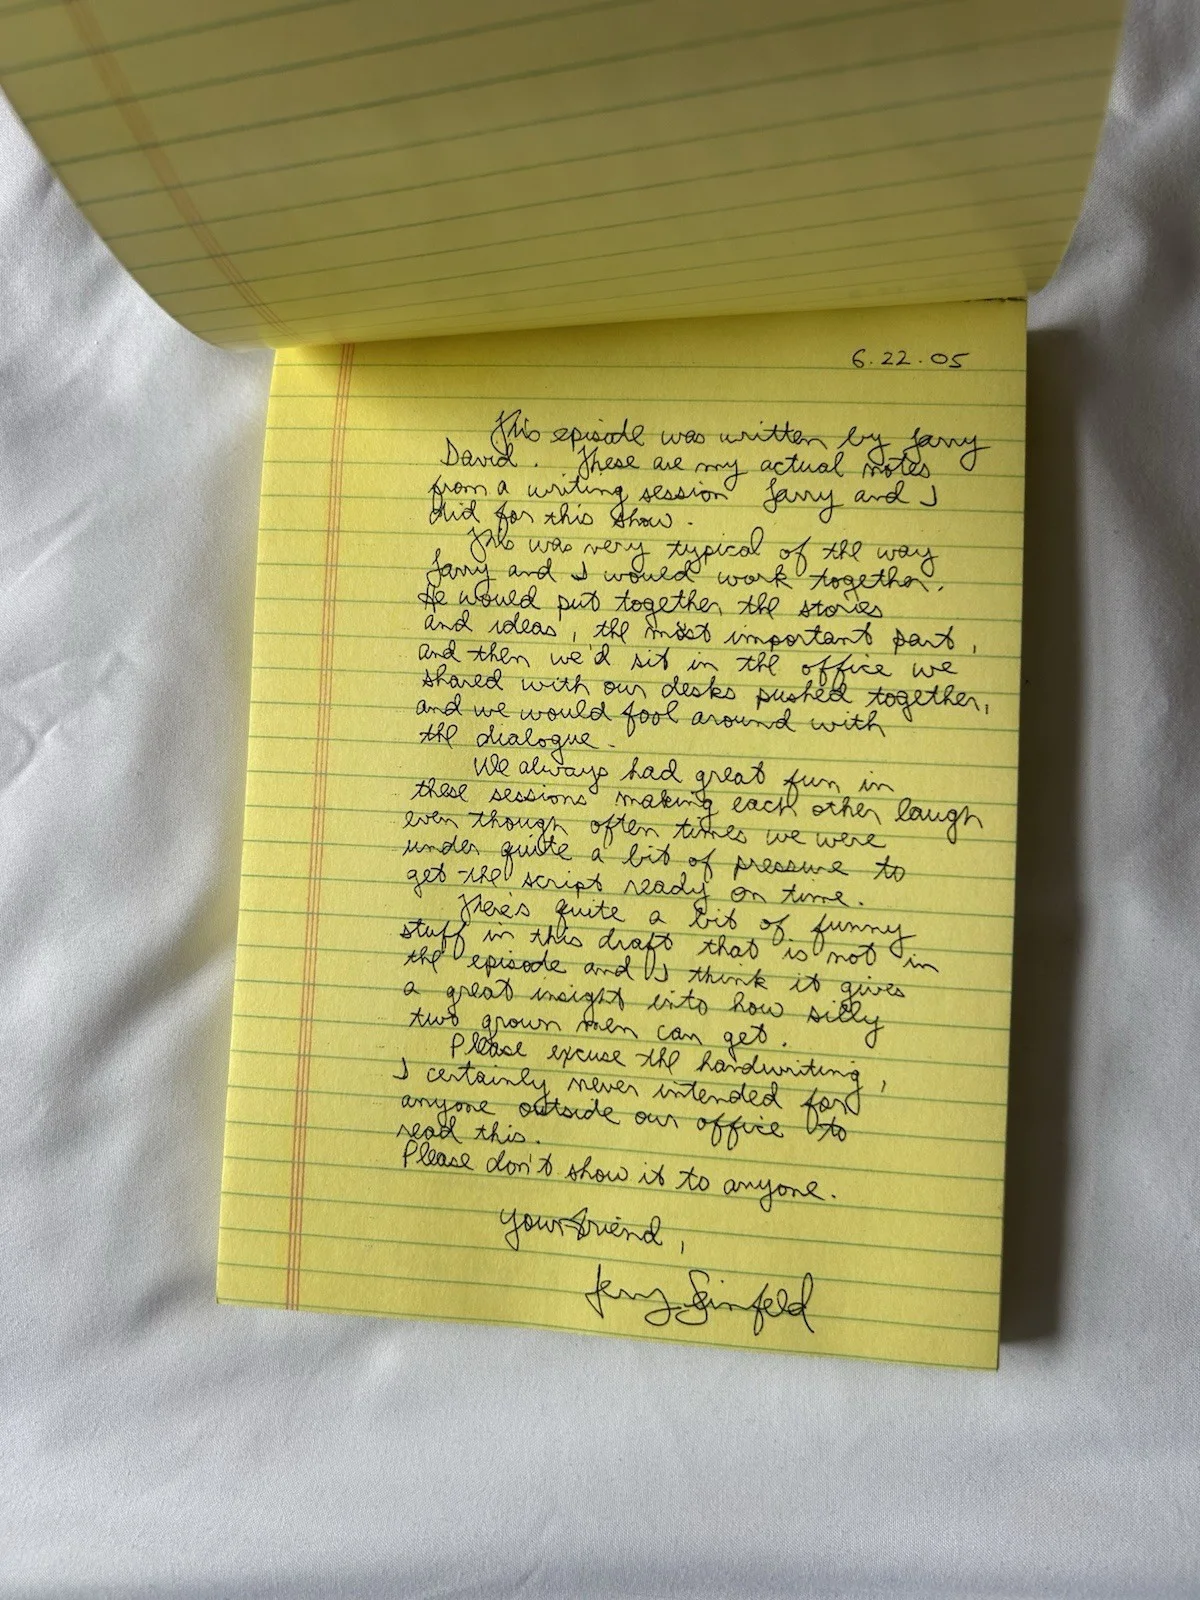 6.22.05
This episode was written by Larry
David. These are my actual notes
from a writing session Larry and I
did for this show.
This was very typical of the way
Larry and I would work together.
He would put together the stories
and ideas, the most important part,
and then we'd sit in the office we
shared with our desks pushed together,
and we would fool around with
the dialogue.
We always had great fun in
these sessions making each other laugh
even though often times we were
under quite a bit of pressure to
get the script ready on time.
There's quite a bit of funny
stuff in this draft that is not in
the episode and I think it gives
a great insight into how silly
two grown men can get.
Please excuse the handwriting,
I certainly never intended for
anyone outside our office to
read this.
Please don't show it to anyone.
Your friend,
Jerry Seinfeld